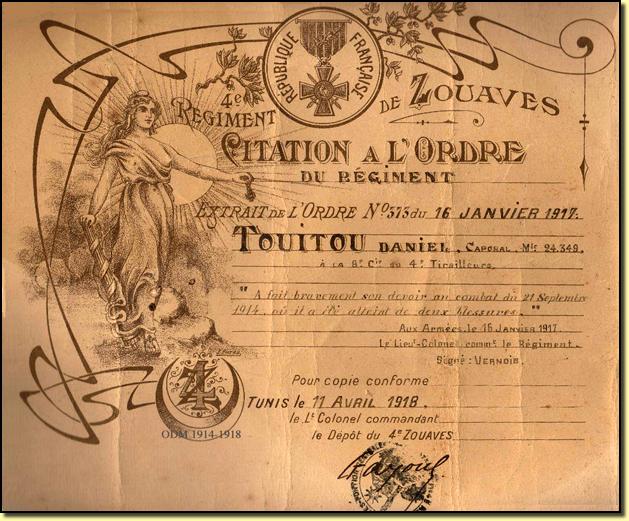 RÉPUBLIQUE FRANÇAISE
4e RÉGIMENT DE ZOUAVES
CITATION A L'ORDRE
DU RÉGIMENT
EXTRAIT DE L'ORDRE No 373 du 16 JANVIER 1917.
TOUITOU DANIEL, CAPORAL, Mle 24.349,
à la 8e Cie du 4e Tirailleurs
" A fait bravement son devoir au combat du 21 Septembre
1914, où il a été atteint de deux blessures. "
Aux Armées, le 16 Janvier 1917.
Le Lieut-Colonel commt le Régiment.
Signé : VERNOIS.
Pour copie conforme
TUNIS le 11 AVRIL 1918.
le Lt Colonel commandant
le Dépôt du 4e ZOUAVES
4
ODM 1914-1918